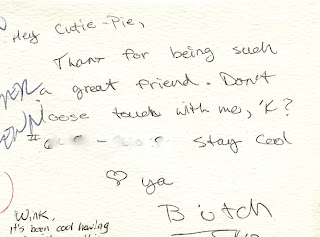 Hey Cutie-Pie,
Thanx for being such
a great friend. Don't
loose touch with me, 'K?
# Stay Cool
♡ ya
Butch
Wink,
it's been cool having